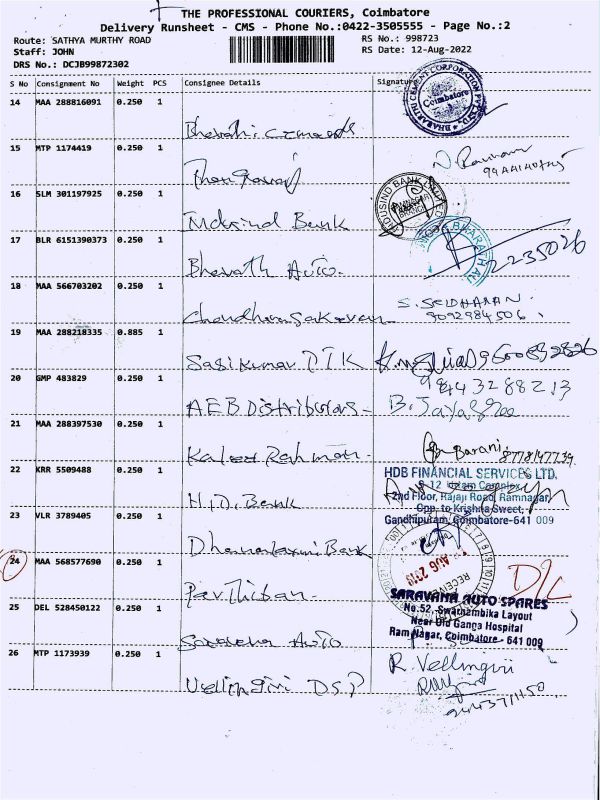 THE PROFESSIONAL COURIERS, Coimbatore
Delivery Runsheet - CMS - Phone No.:0422-3505555 - Page No.:2
Route: SATHYA MURTHY ROAD
RS No.: 998723
Staff: JOHN
RS Date: 12-Aug-2022
DRS No.: DCJB99872302
S No Consignment No Weight PCS Consignee Details Signature
14 MAA 288816091 0.250 1
Coimbatore
15 MTP 1174419 0.250 1
16 SLM 301197925 0.250 1 Indusind Bank
17 BLR 6151390373 0.250 1 Bharath Auto.
2235026
18 MAA 566703202 0.250 1
S. SRIDHARAN.
9092984506
19 MAA 288218335 0.885 1 Sasikumar P.T.K
20 GMP 483829 0.250 1 AEB Distributors - B. Jayashree
9443288213
21 MAA 288397530 0.250 1 Kaleel Rahman.
Barani
8778147739
22 KRR 5509488 0.250 1 H.D. Bank
HDB FINANCIAL SERVICES LTD.
2nd Floor, Rajaji Road, Ramnagar
Opp. to Krishna Sweet,
Gandhipuram, Coimbatore-641 009
23 VLR 3789405 0.250 1 Dhanalaxmi Bank
24 MAA 568577690 0.250 1 Parthiban.
AUG 2019
RECEIVED
D/L
25 DEL 528450122 0.250 1 Saravana Auto
SARAVANA AUTO SPARES
No.52, Swarnambika Layout
Near Old Ganga Hospital
Ram Nagar, Coimbatore - 641 009
26 MTP 1173939 0.250 1 Vellingiri DSP
R. Vellingiri
9443711150